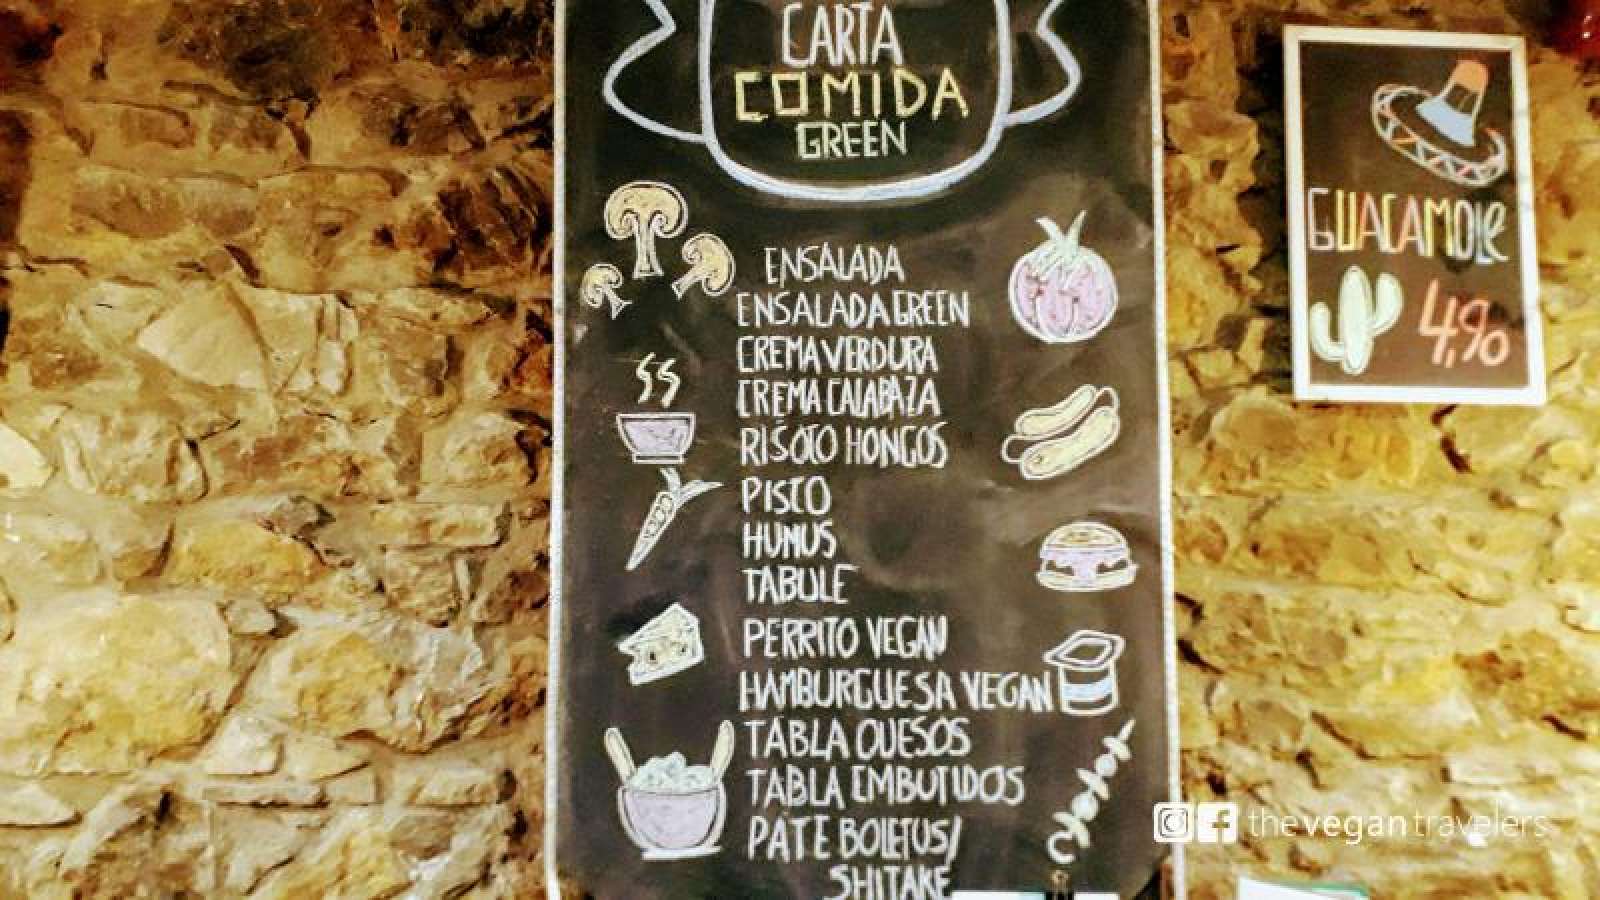 CARTA
COMIDA
GREEN
ENSALADA
ENSALADA GREEN
CREMA VERDURA
CREMA CALABAZA
RISOTO HONGOS
PISTO
HUMUS
TABULE
PERRITO VEGAN
HAMBURGUESA VEGAN
TABLA QUESOS
TABLA EMBUTIDOS
PATE BOLETUS/
SHITAKE
GUACAMOLE
4,90
thevegantravelers